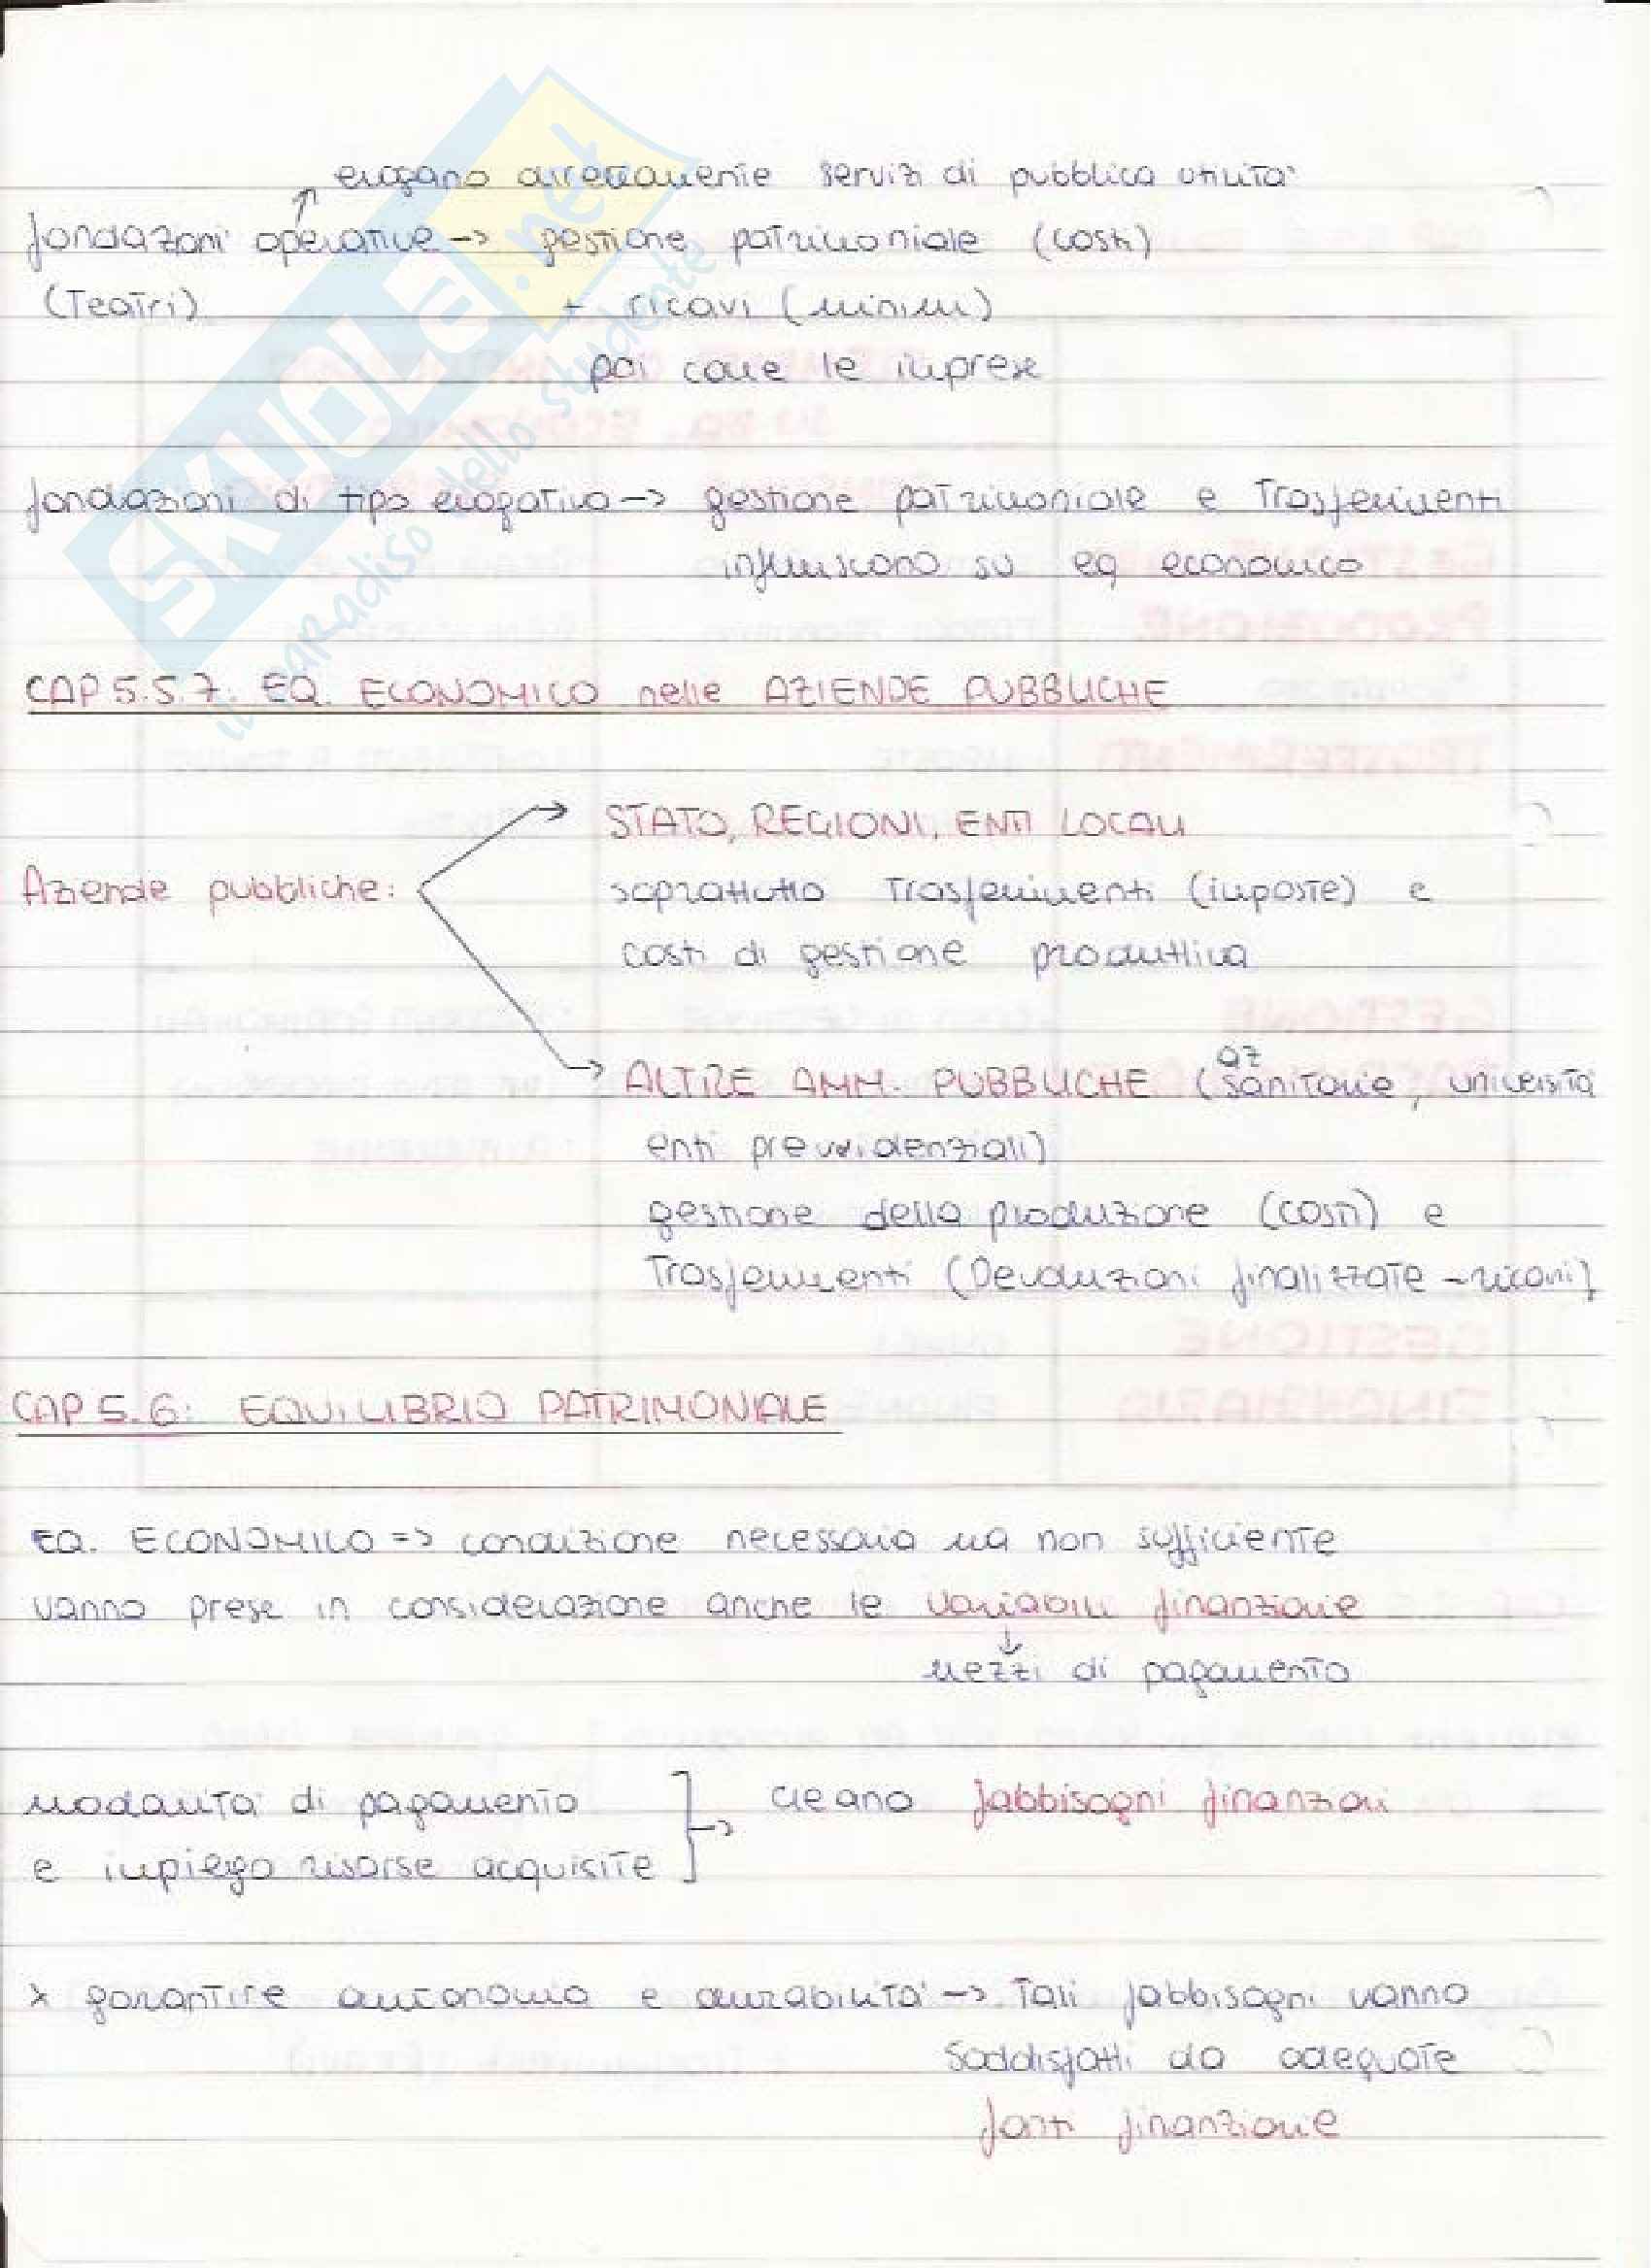 erogano direttamente servizi di pubblica utilità
fondazioni operative -> gestione patrimoniale (costi)
(Teatri) + ricavi (minimi)
poi come le imprese
fondazioni di tipo erogativo -> gestione patrimoniale e trasferimenti
influiscono su eq economico
CAP 5.5.7: EQ. ECONOMICO nelle AZIENDE PUBBLICHE
STATO, REGIONI, ENTI LOCALI
Aziende pubbliche: soprattutto trasferimenti (imposte) e
costi di gestione produttiva
ALTRE AMM. PUBBLICHE (az sanitarie, università
enti previdenziali)
gestione della produzione (costi) e
trasferimenti (Devoluzioni finalizzate - ricavi)
CAP 5.6: EQUILIBRIO PATRIMONIALE
EQ. ECONOMICO => condizione necessaria ma non sufficiente
vanno prese in considerazione anche le variabili finanziarie
↓
mezzi di pagamento
modalità di pagamento
e impiego risorse acquisite -> creano fabbisogni finanziari
x garantire autonomia e durabilità -> tali fabbisogni vanno
soddisfatti da adeguate
fonti finanziarie
SKUOLA.net
il paradiso dello studente